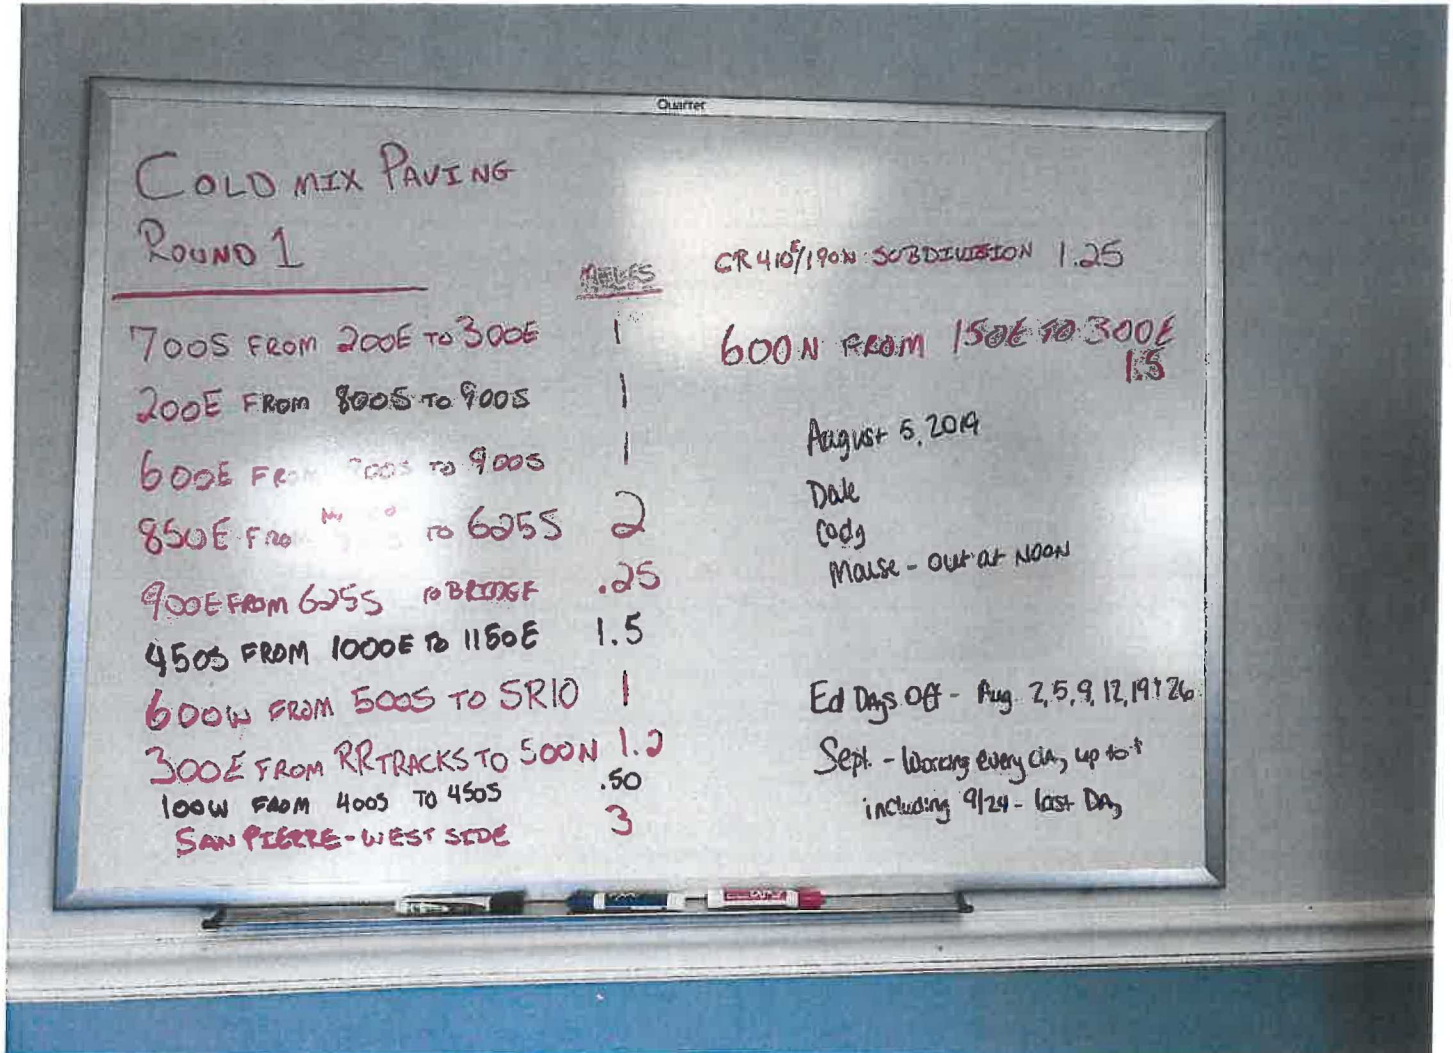 Quarter
COLD MIX PAVING
ROUND 1
MILES
700S FROM 200E TO 300E 1
200E FROM 800S TO 900S 1
600E FROM TO 900S 1
850E FROM TO 625S 2
900E FROM 625S TO BRIDGE .25
450S FROM 1000E TO 1150E 1.5
600W FROM 500S TO SR10 1
300E FROM RR TRACKS TO 500N 1.2
100W FROM 400S TO 450S .50
SAN PIERRE - WEST SIDE 3
CR 410E/190N SUBDIVISION 1.25
600N FROM 150E TO 300E
1.5
August 5, 2019
Dale
Cody
Mouse - out at NOON
Ed Days Off - Aug. 2, 5, 9, 12, 19 + 26
Sept. - Working every day up to +
including 9/24 - last Day